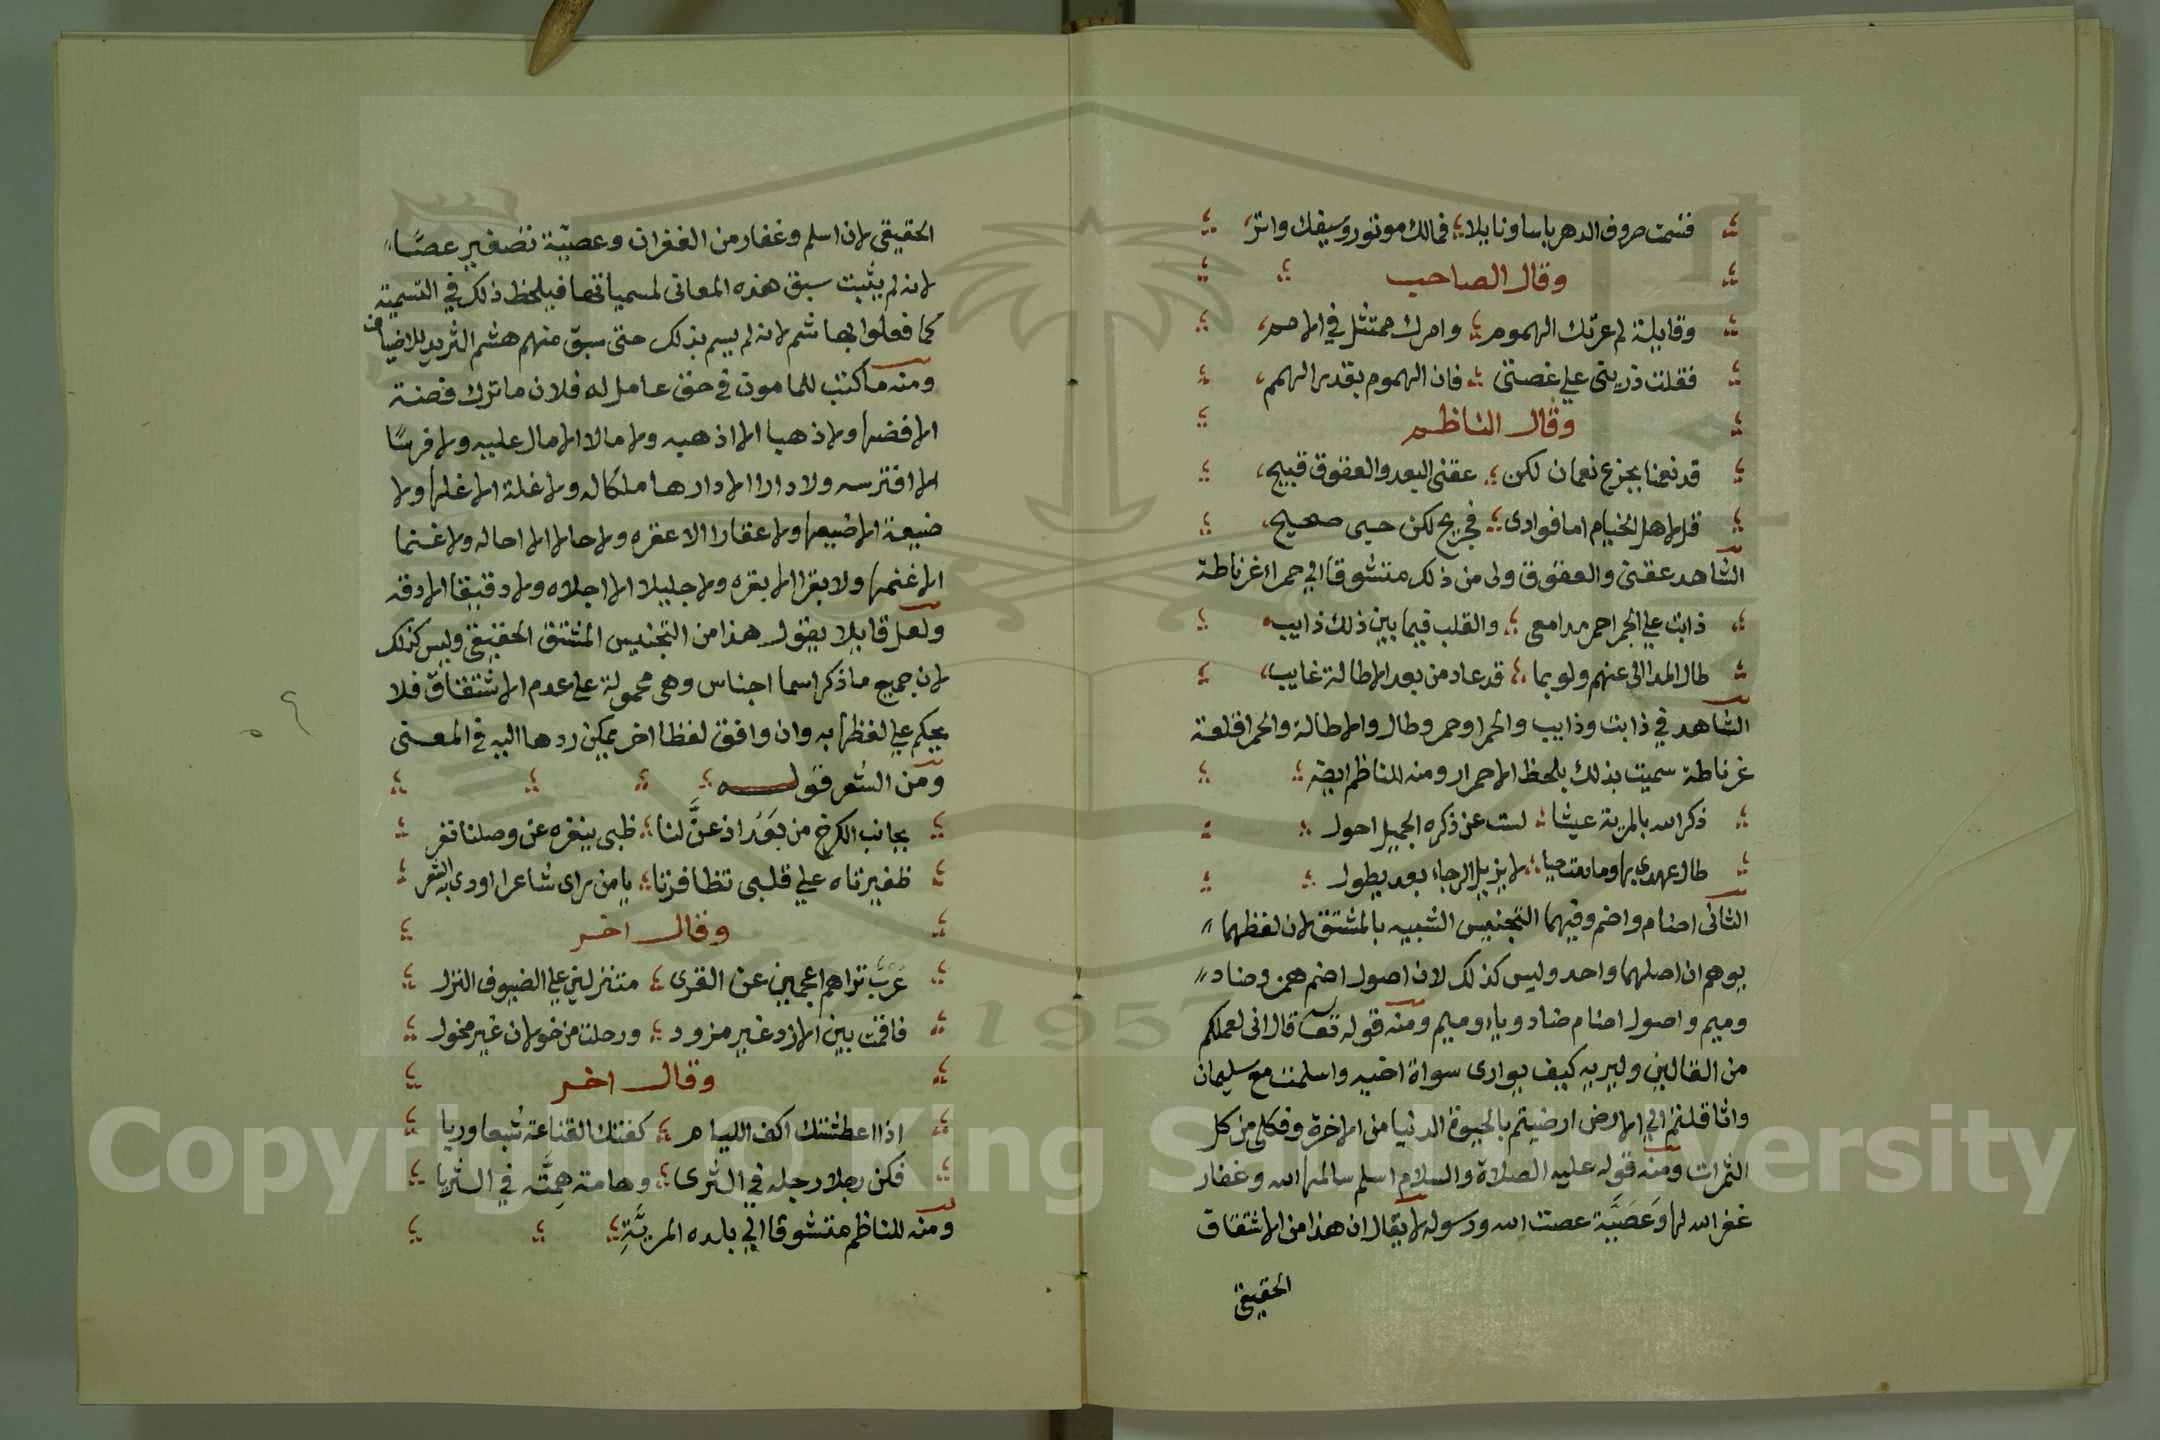 فسمت صروف الدهر باسا ونايلا فمالك موتور وسيفك واتر
وقال الصاحب
وقايلة لم عرتك الهموم وامرك ممتثل في الامم
فقلت ذريني علي غصتي فان الهموم بقدر الهمم
وقال الناظم
قد نعمنا بجزع نعمان لكن عقني البعد والعقوق قبيح
قل لاهل الخيام اما فوادى فجريح لكن حبى صحيح
الشاهد عقني والعقوق ولى من ذلك متشوقا الي حمراء غرناطة
ذابت علي الحمر احمر مدامعى والقلب فيما بين ذلك ذايب
طال المدا الى عنهم ولربما قد عاد من بعد الاطالة غايب
الشاهد في ذابت وذايب والحمرا وحمر وطال والاطالة والحمرا قلعة
غرناطة سميت بذلك بلحظ الاحمرار ومنه للناظم ايضه
ذكر الله بالمرية عيشا لست عن ذكره الجميل احول
طال عهدى بها وما مت حيا لا يزيل الرجاء بعد يطول
الثانى اضام واضم وفيهما التجنيس الشبيه بالمشتق لان لفظهما
يوهم ان اصلهما واحد وليس كذلك لان اصول اضم همز وضاد
وميم واصول اضام ضاد وياء وميم ومنه قوله تعا قال انى لعملكم
من القالين وليريه كيف يوارى سواة اخيه واسلمت مع سليمان
واثاقلتم الي الارض ارضيتم بالحيوة الدنيا من الاخرة وفكلى من كل
الثمرات ومنه قوله عليه الصلاة والسلام اسلم سالمها الله وغفار
غفر الله لها وعصية عصت الله ورسوله لا يقال ان هذا من الاشتقاق
الحقيقى
الحقيقي لان اسلم وغفار من الغفران وعصية تصغير عصا
لانه لم يثبت سبق هذه المعانى لمسمياتها فيلحظ ذلك في التسمية
كما فعلوا بهاشم لانه لم يسم بذلك حتى سبق منهم هشم الثريد للاضياف
ومنه ما كتب للمامون في حق عامل له فلان ما ترك فضة
الا فضها ولا ذهبا الا اذهبه ولا مالا الا مال عليه ولا فرسا
الا افترسه ولا دارا الا دارها ملكا له ولا غلة الا غلها ولا
ضيعة الا ضيعها ولا عقارا الا عقره ولا حالا الا احاله ولا غنما
الا غنمها ولا بقرا الا بقره ولا جليلا الا اجلاه ولا دقيقا الا دقه
ولعل قايلا يقول هذا من التجنيس المشتق الحقيقى وليس كذلك
لان جميع ما ذكر اسما اجناس وهى محمولة علي عدم الاشتقاق فلا
يحكم علي لفظها به وان وافق لفظا اخر يمكن ردها اليه في المعنى
ومن الشعر قوله
بجانب الكرخ من بغداد عن لنا ظبى ينفره عن وصلنا نفر
ظفيرتاه علي قلبى تظافرتا يا من راى شاعرا اودى به الشعر
وقال اخر
عرب تراهم اعجمين عن القرى متنزلين علي الضيوف النزل
فاقمت بين الازد غير مزود ورحلت من خولان غير مخول
وقال اخر
اذا اعطشتك اكف الليام كفتك القناعة شبعا وريا
فكن رجلا رجله في الثرى وهامة همته في الثريا
ومنه للناظم متشوقا الي بلده المرية
Copyright © King Saud University
1957